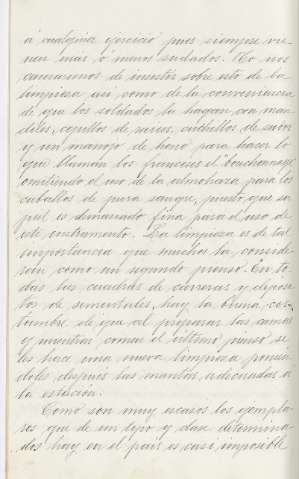 á cualquier ejercicio pues siempre vie-
nen mas ó menos sudados. No nos
cansaremos de insistir sobre esto de la
limpieza así como de la conveniencia
de que los soldados la hagan con man-
diles, cepillos de raices, cuchillos de sudor
y un manojo de heno para hacer lo
que llaman los franceses el bouchonnage
omitiendo el uso de la almohaza para los
caballos de pura sangre, puesto que su
piel es demasiado fina para el uso de
este instrumento. La limpieza es de tal
importancia que muchos la conside-
ran como un segundo pienso. En to-
das las cuadras de carreras y deposi-
tos de sementales, hay la buena cos-
tumbre de que al preparar las camas
y mientras comen el último pienso se
les hace una nueva limpieza ponien-
doles después las mantas adecuadas a
la estación.
Como son muy escasos los ejempla-
res que de un tipo y clase determina-
dos hay en el país es casi imposible